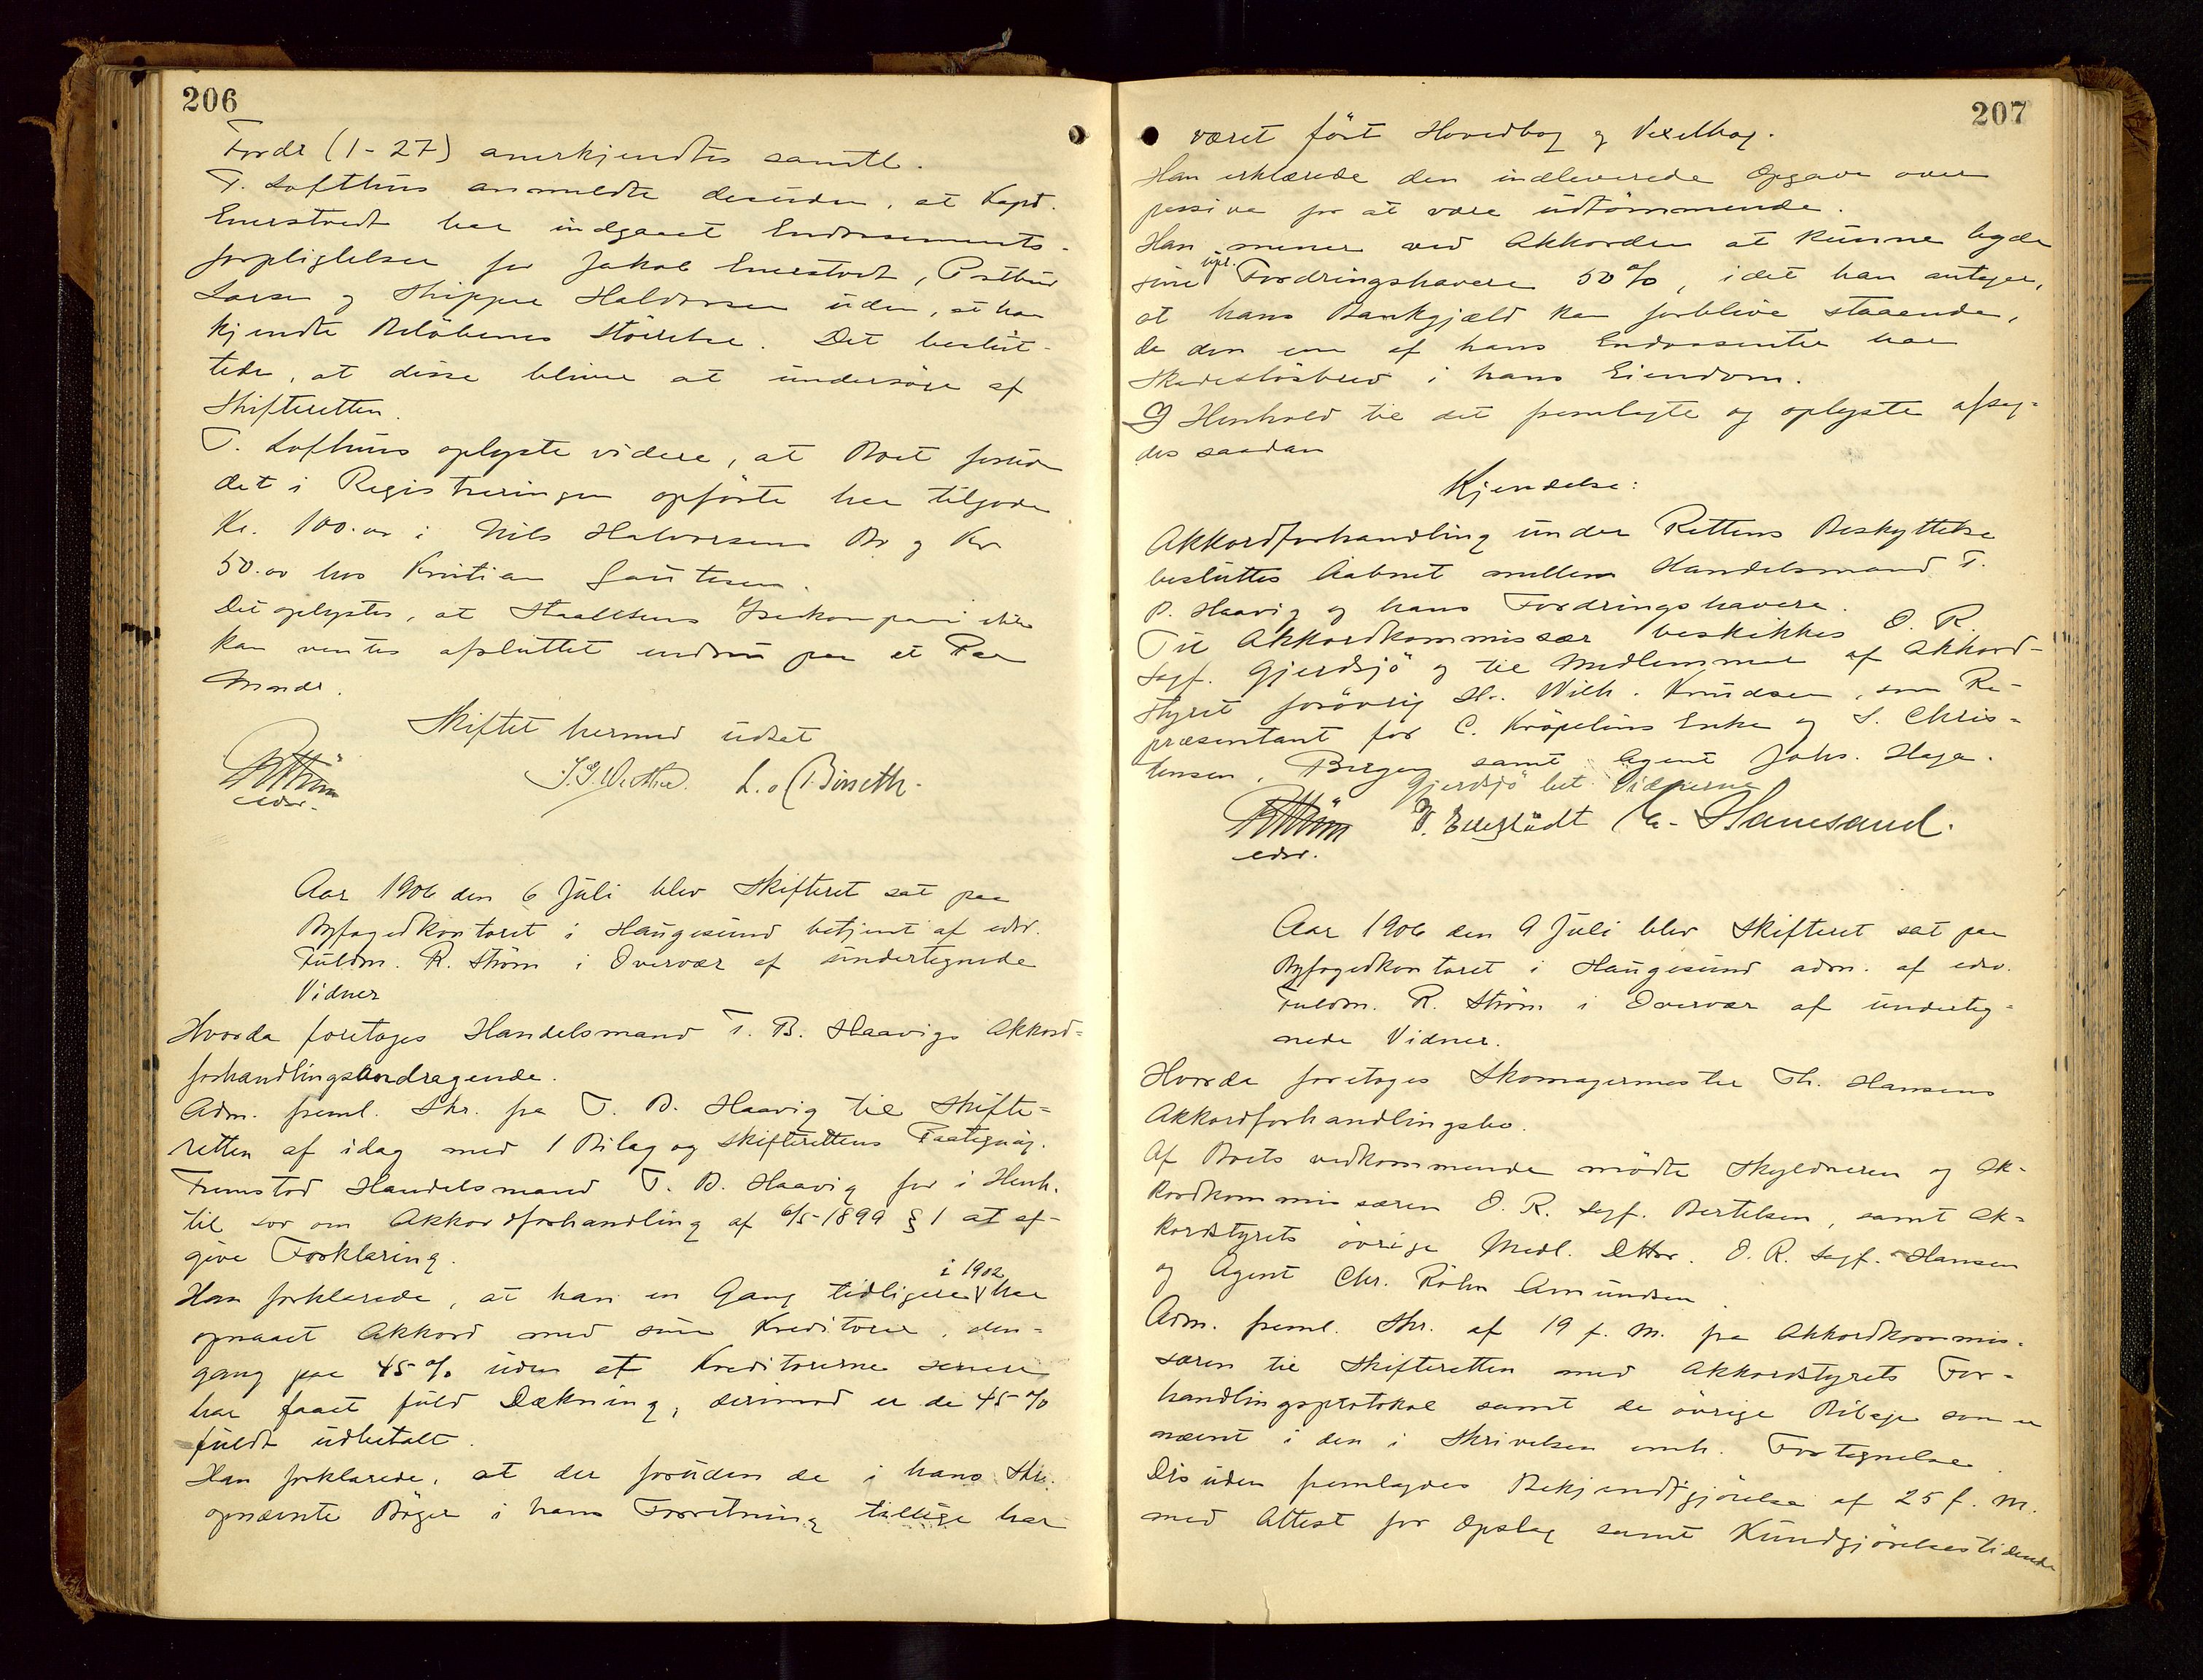 206
Fordr (1-27) anerkjendtes samtl.
T. Lofthus anmeldte desuden, at Kapt.
Enerstvedt har indgaaet Endossements-
forpligtelser for Jakob Enerstvedt, Postbud
Larsen og Skipper Haldorsen uden, at han
kjendte Beløbenes Størrelse. Det beslut-
tedes, at disse bliver at undersøge af
Skifteretten.
T. Lofthus oplyste videre, at Boet foruden
det i Registreringen opførte har tilgode
Kr. 100.00 i Nils Halvorsens Bo og Kr
50.00 hos Kristian Gautesen.
Det oplystes, at Staalehens kompani ikke
kan ventes afsluttet endnu paa et Par
Mander.
Skiftet hermed udsat
RStrøm
edsv.
L. Binseth.
Aar 1906 den 6 Juli blev Skifteret sat paa
Byfogedkontoret i Haugesund betjent af edsv.
Fuldm. R. Strøm i Overvær af undertegnede
Vidner
Hvorda foretoges Handelsmand T. B. Haavigs Akkord-
forhandlingsandragende.
Adm. freml. Skr. fra T. B. Haavig til Skifte-
retten af idag med 1 Bilag og Skifterettens Paategning.
Fremstod Handelsmand T. B. Haavig for i Henh.
til Lov om Akkordforhandling af 6/5-1899 § 1 at af-
give Forklaring.
Han forklarede, at han en Gang tidligere i 1902 har
opnaaet Akkord med sine Kreditorer, den-
gang paa 45 % uden at Kreditorerne senere
har faaet fuld Dækning, derimod er de 45 %
fuldt udbetalt.
Han forklarede, at der foruden de i hans Skr.
opnævnte Bøger i hans Forretning tillige har
207
været ført Hovedbog og Vexelbog.
Han erklærede den indleverede Opgave over
passiva for at være udtømmende.
Han mener ved Akkorden at kunne byde
sine upr. Fordringshavere 50 %, idet han antager,
at hans Bankgjæld kan forblive staaende,
da den ene af hans Endossenter har
Skadesløsbrev i hans Eiendom.
I Henhold til det fremlagte og oplyste afsag-
des saadan
Kjendelse:
Akkordforhandling under Rettens Beskyttelse
besluttes aabnet mellem Handelsmand T.
B. Haavig og hans Fordringshavere.
Til Akkordkommissær beskikkes O. R.
Sagf. Gjerdsjø og til Medlemmer af Akkord-
styret forøvrig Hr. Wilh. Knudsen, som Re-
præsentant for C. Krøpelins Enke og S. Chris-
tensen, Bergen samt Agent Johs. Haga.
Gjerdsjø bet. Vidnerne
RStrøm
edsv.
Aar 1906 den 9 Juli blev Skifteret sat paa
Byfogedkontoret i Haugesund adm. af edsv.
Fuldm. R. Strøm i Overvær af underteg-
nede Vidner.
Hvorda foretoges Skomagermester Th. Hansens
Akkordforhandlingsbo.
Af Boets vedkommende mødte Skyldneren og Ak-
kordkommissæren O. R. Sagf. Bertelsen, samt Ak-
kordstyrets øvrige Medl. DHrr. O. R. Sagf. Hansen
og Agent Chr. Røhn Amundsen.
Adm. freml. Skr. af 19 f. M. fra Akkordkommis-
særen til Skifteretten med Akkordstyrets For-
handlingsprotokol samt de øvrige Bilage som er
nævnt i den i Skrivelsen omh. Fortegnelse.
Desuden fremlagdes Bekjendtgjørelse af 25 f. M.
med Attest for Opslag samt Kundgjørelsestidende